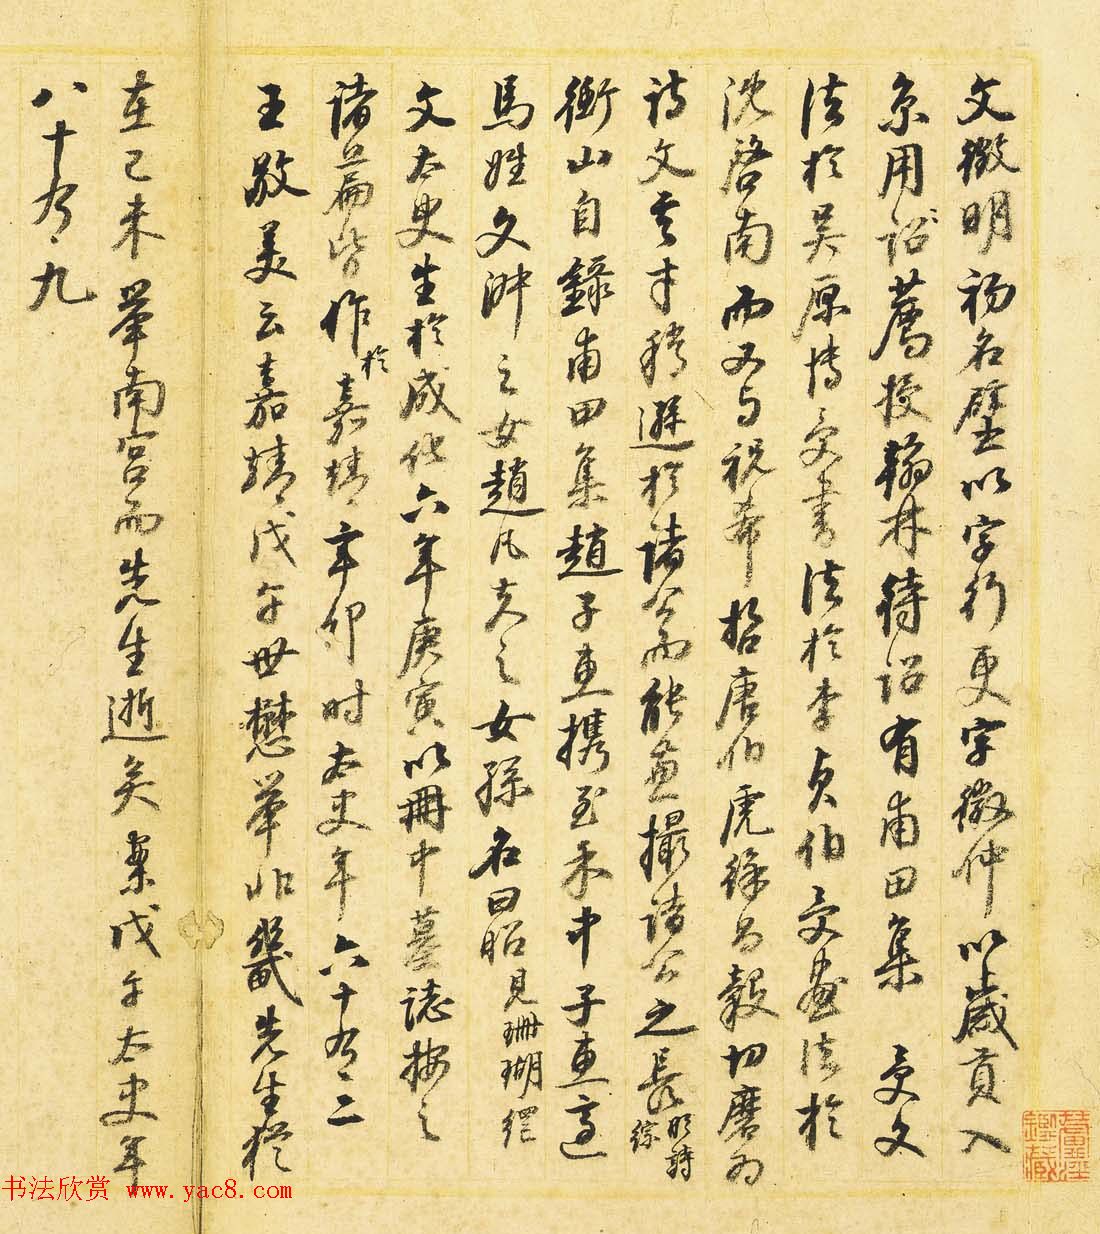 文徵明初名璧以字行更字徵仲以歲貢入
京用詔薦授翰林待詔有甫田集 受文
法於吴原博受書法於李貞伯受畫法於
沈啓南而又与祝希哲唐伯虎徐昌穀切磨为
詩文其才稍遜於諸公而能兼撮諸公之長明詩綜
衡山自錄甫田集趙子惠携至禾中子惠適
馬姓文淑之女趙凡夫之女孫名曰昭見珊瑚網
文太史生於成化六年庚寅以冊中墓誌按之
諸篇皆作於嘉靖辛卯时太史年六十有二
王敬美云嘉靖戊午世懋舉北畿先生猶
在己未舉南宫而先生逝矣案戊午太史年
八十有九
书法欣赏 www.yac8.com